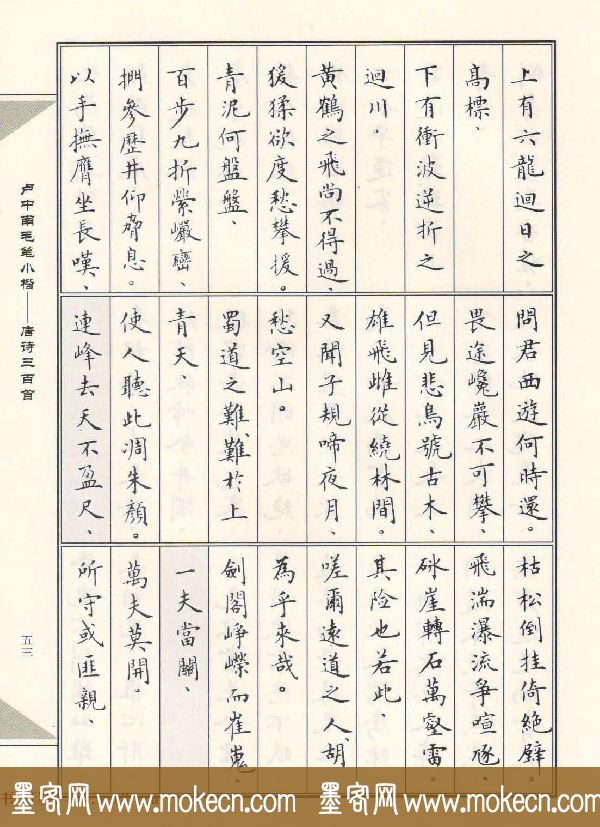 上有六龍迴日之
高標、
下有衝波逆折之
迴川。
黃鶴之飛尚不得過、
猨猱欲度愁攀援。
青泥何盤盤、
百步九折縈巖巒、
捫參歷井仰脅息。
以手撫膺坐長嘆、
問君西遊何時還。
畏途巉巖不可攀、
但見悲鳥號古木、
雄飛雌從繞林間。
又聞子規啼夜月、
愁空山。
蜀道之難、難於上
青天
使人聽此凋朱顏。
連峰去天不盈尺、
枯松倒挂倚絕壁。
飛湍瀑流爭喧豗、
砯崖轉石萬壑雷。
其险也若此、
嗟爾遠道之人、胡
為乎來哉。
劍閣崢嶸而崔嵬、
一夫當關、
萬夫莫開。
所守或匪親、
卢中南毛笔小楷——唐诗三百首
五三
墨客网 www.mokecn.com 墨客网 www.mokecn.com